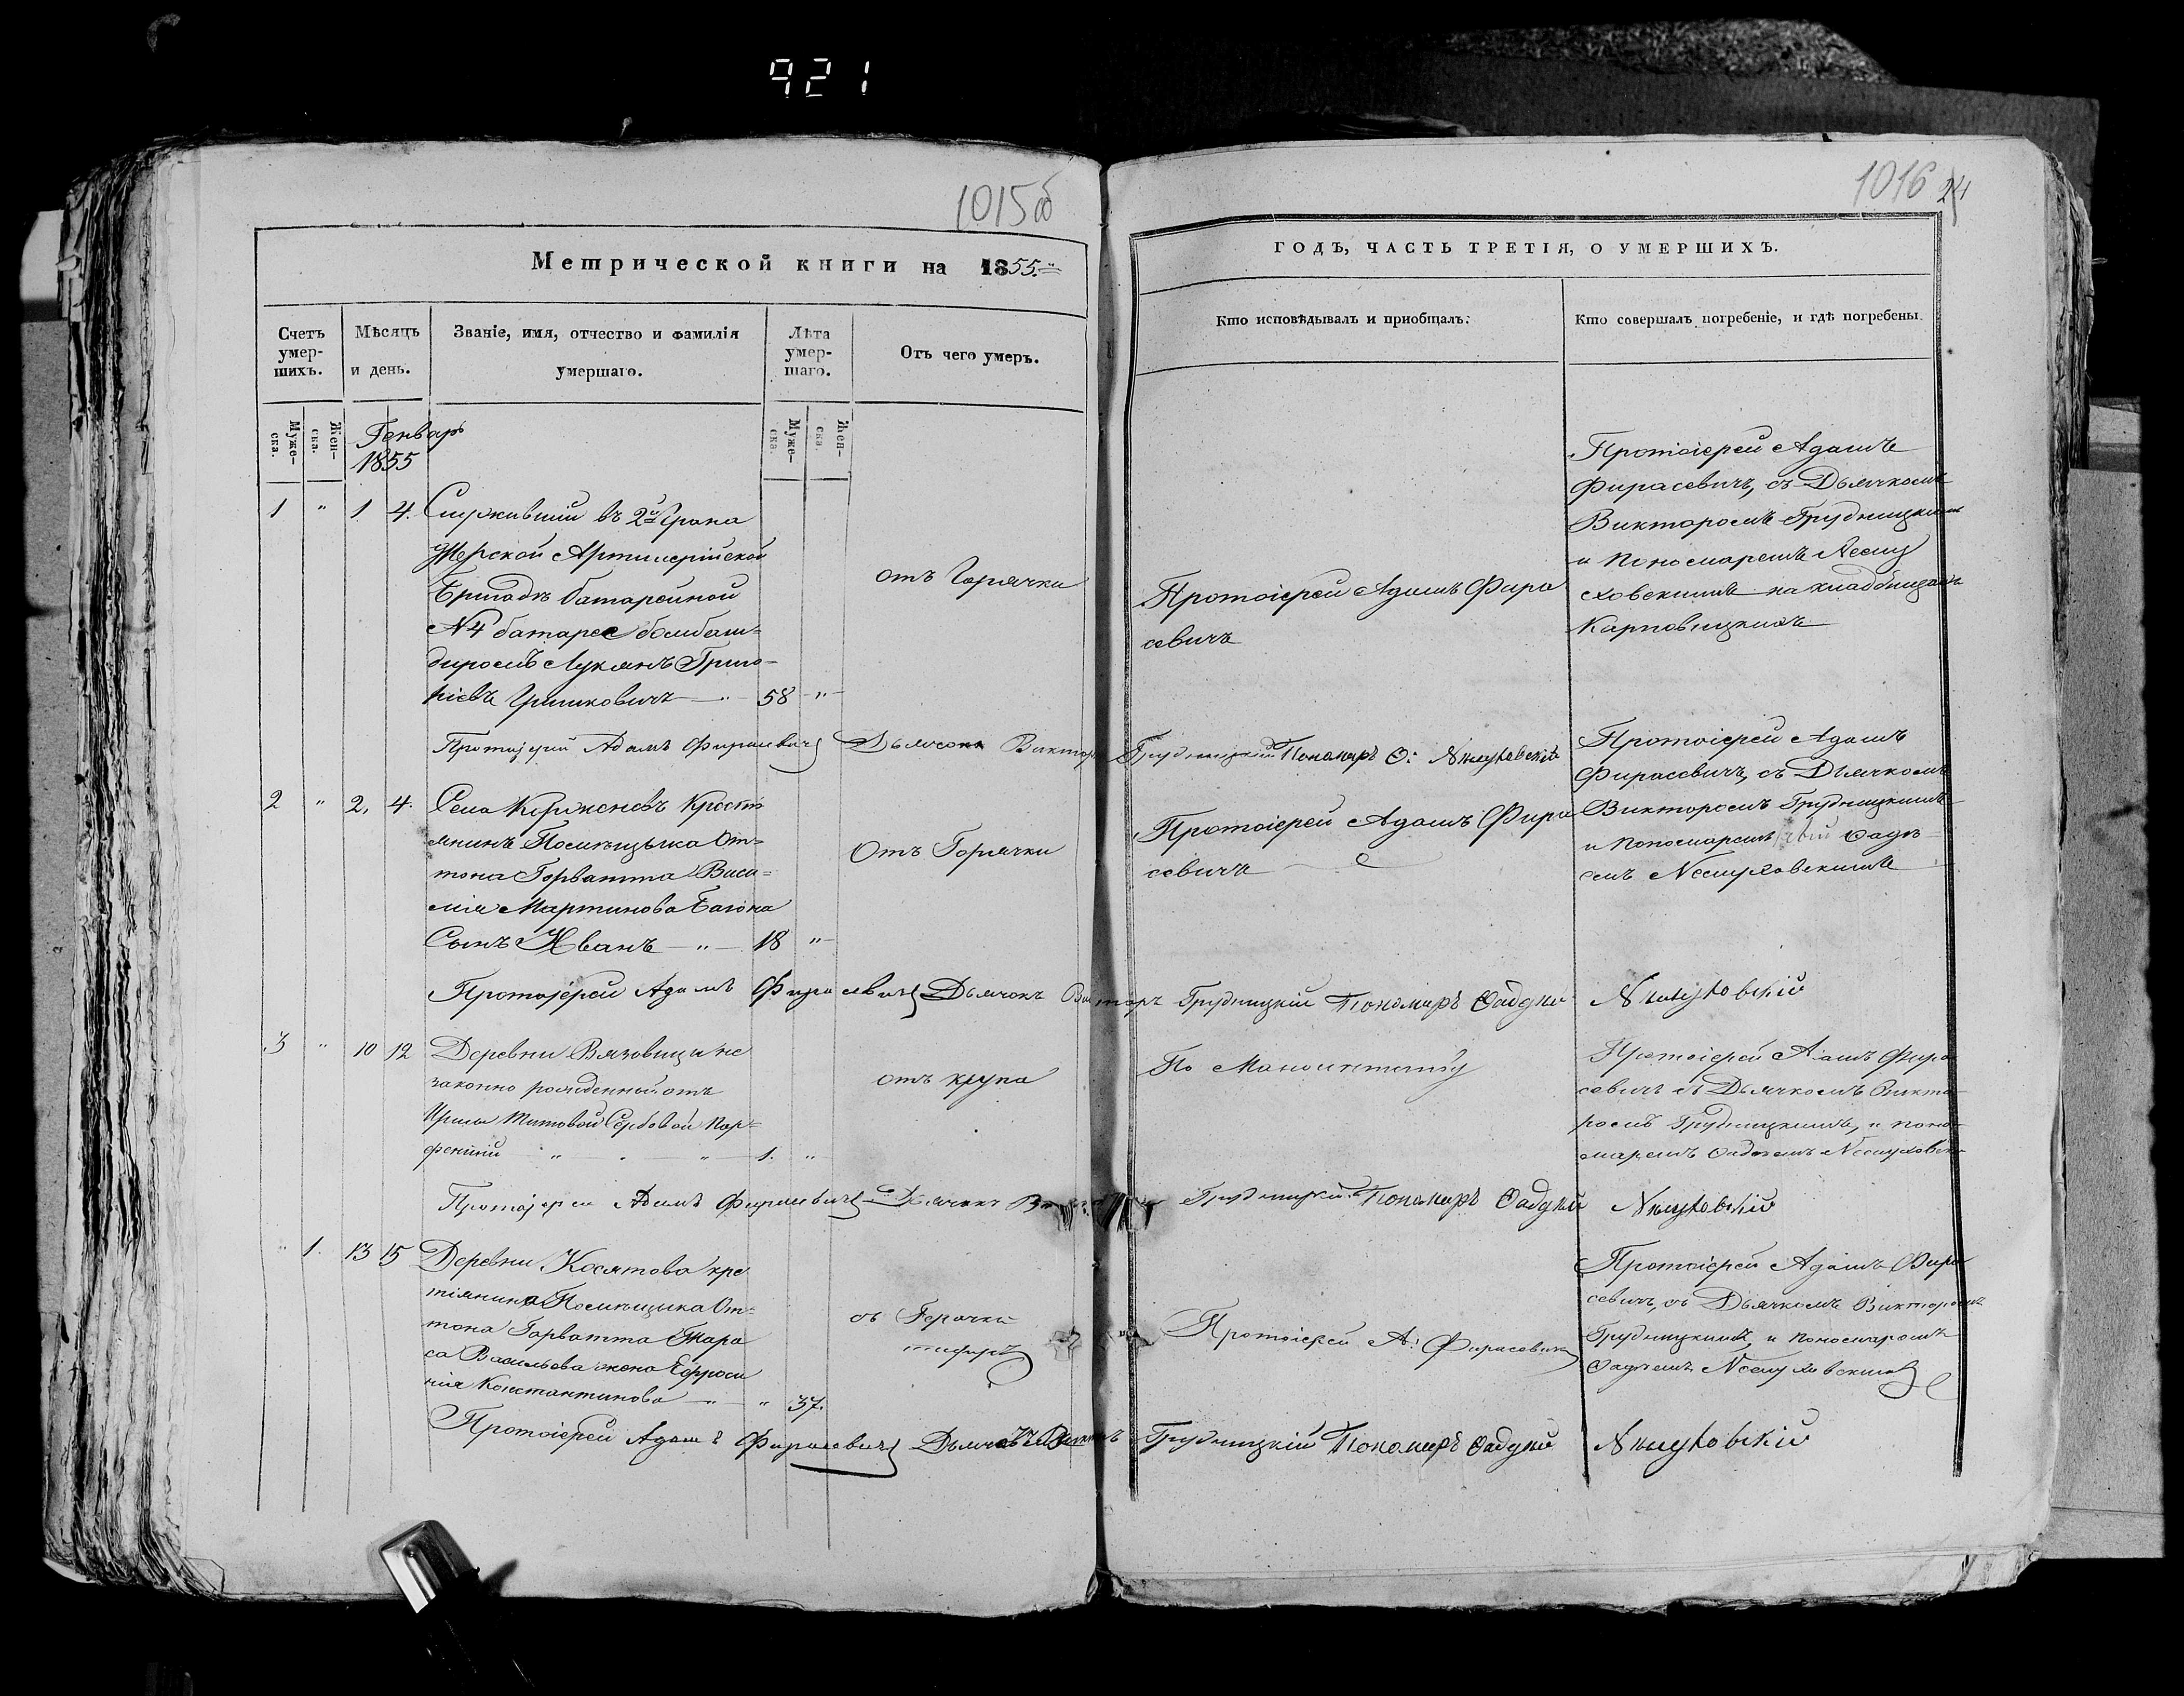 921
1015об
1016 24
Метрической книги на 1855.
ГОДЪ, ЧАСТЬ ТРЕТІЯ, О УМЕРШИХЪ.
Счетъ умер-
шихъ.
Мѣсяцъ
и день.
Званіе, имя, отчество и фамилія
умершаго.
Лѣта
умер-
шаго.
Отъ чего умеръ.
Кто исповѣдывалъ и пріобщалъ:
Кто совершалъ погребеніе, и гдѣ погребены.
Муже-
ска.
Жен-
ска.
Генварь
1855
Муже-
ска.
Жен-
ска.
1 " 1 4. Служившій въ 2й
Артилерійской
Бригадѣ батарейной
№4 батареи бомбан-
диромъ Лукянъ Григо-
ріевъ Гришковичъ — " — 58 "
отъ Горячки
Протоіерей Адамъ Фира
севичъ
Протоіерей Адамъ
Фирасевичъ, съ Дьячкомъ
Викторомъ Грудницкимъ
и Пономаремъ Неслу
ховскимъ на кладбищахъ
Карповицкихъ
Протоіерей Адамъ Фирасевичъ Дьячокъ Викторъ Грудницкій Пономаръ Ѳ: Нслуховскій
2 " 2. 4. Села Корженевъ Крестя
янинъ Помѣщыка От-
тона Горватта Васи-
лія Мартинова Багона
Сынъ Иванъ — " — 18 "
Отъ Горячки
Протоіерей Адамъ Фира
севичъ
Протоіерей Адамъ
Фирасевичъ, съ Дьячкомъ
Викторомъ Грудницкимъ
и Пономаремъ Ѳадѣ-
емъ Неслуховскимъ
Протоіерей Адамъ Фирасевичъ Дьячокъ Викторъ Грудницкій Пономаръ Ѳадѣй Нслуховскій
3 " 10 12 Деревни Вязовицы не
законно рожденный отъ
Ирины Титовой Сербовой Пар-
феній " — " — 1. "
отъ крупа
По
Протоіерей Адамъ Фира
севичъ съ Дьячкомъ Викто-
ромъ Грудницкимъ, и поно-
маремъ Ѳадѣемъ Неслуховск
Протоіерей Адамъ Фирасевичъ Дьячокъ Грудницкій Пономаръ Ѳадѣй Нслуховскій
" 1. 13 15 Деревни Косятова кре
тіянина Помѣщика От-
тона Горватта Тара
са Васильева жена Ефроси
нія Константинова — " — " 37.
съ Горячки
тифъ
Протоіерей А: Фирасевичъ
Протоіерей Адамъ Фира
севичъ, съ Дьячкомъ Викторомъ
Грудницкимъ, и пономаремъ
Ѳадѣемъ Неслуховскимъ
Протоіерей Адамъ Фирасевичъ Дьячокъ Викторъ Грудницкій Пономаръ Ѳадѣй Нслуховскій